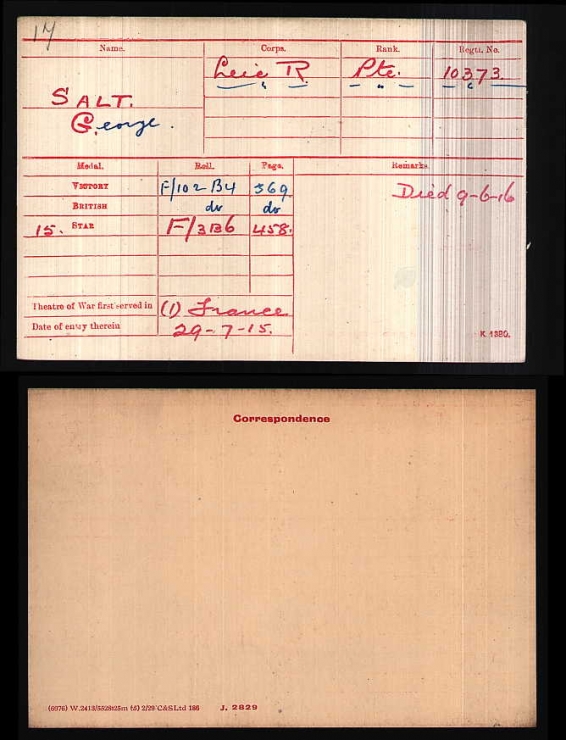 14
Name. Corps. Rank. Regtl. No.
Leic R. Pte. 10373
SALT. " " "
George.
Medal. Roll. Page. Remarks
VICTORY F/102 B4 569. Died 9-6-16
BRITISH do do
15. STAR F/3B6 458.
Theatre of War first served in (1) France
Date of entry therein 29-7-15.
K 1380.
Correspondence
(6976) W.2413/5528 125m 2/20 C&SLtd 186 J. 2829